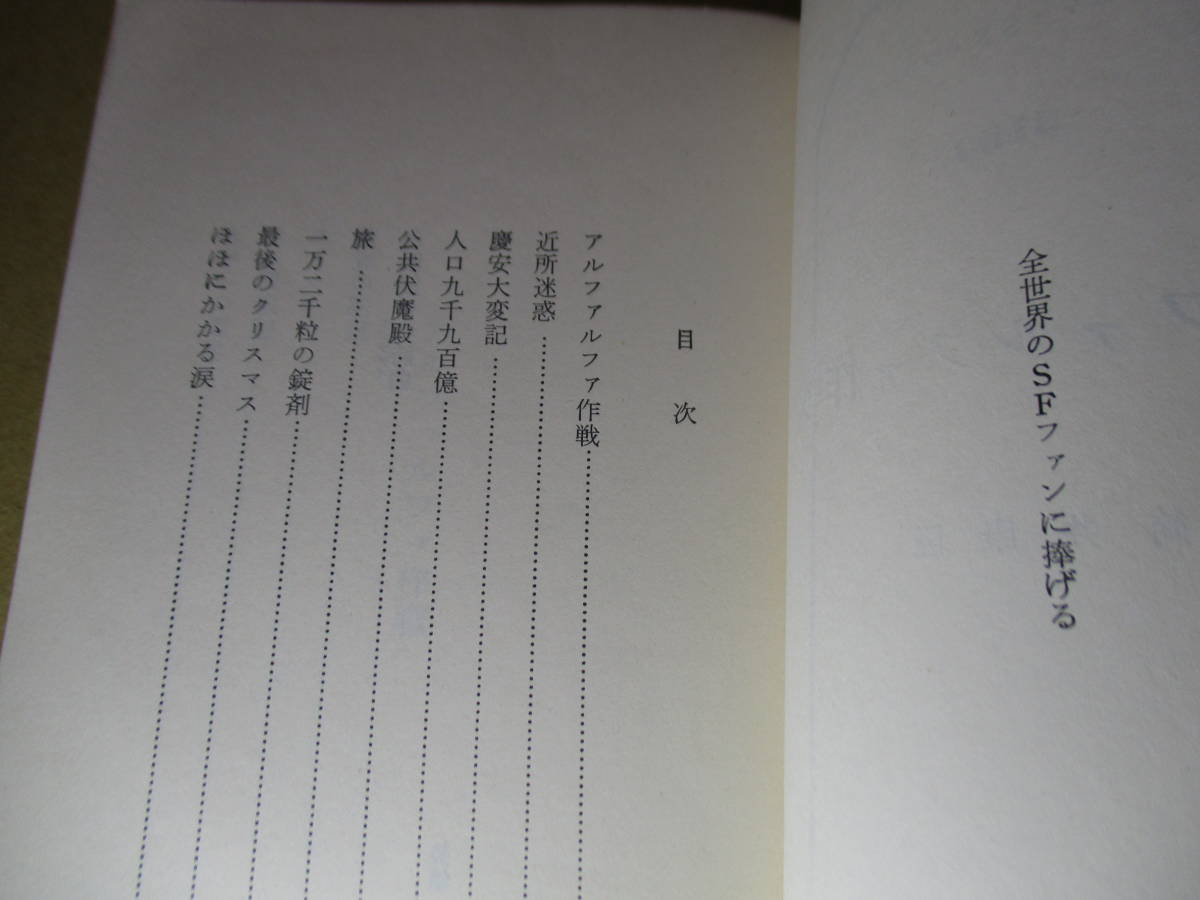 全世界のSFファンに捧げる
目次
アルファルファ作戦
近所迷惑
慶安大変記
人口九千九百億
公共伏魔殿
旅
一万二千粒の錠剤
最後のクリスマス
ほほにかかる涙